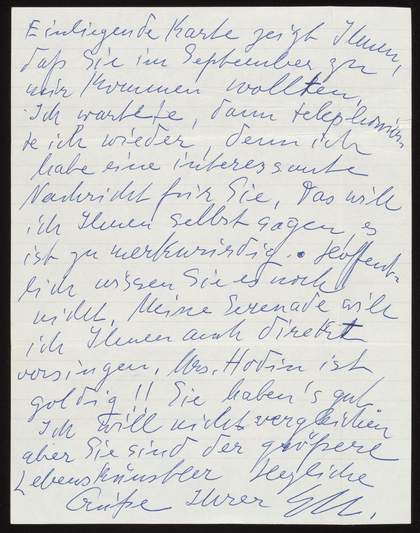 Einliegende Karte zeigt Ihnen,
daß Sie im September zu
mir kommen wollten.
Ich wartete, dann telephonier-
te ich wieder, denn ich
habe eine interessante
Nachricht für Sie, Das will
ich Ihnen selbst sagen, es
ist zu merkwürdig. Hoffent-
lich wissen Sie es noch
nicht. Meine Serenade will
ich Ihnen auch direkt
vorsingen. Mrs. Hodin ist
goldig!! Sie haben's gut
Ich will nicht vergleichen
aber Sie sind der größere
Lebenskünstler Herzliche
Grüße Ihrer